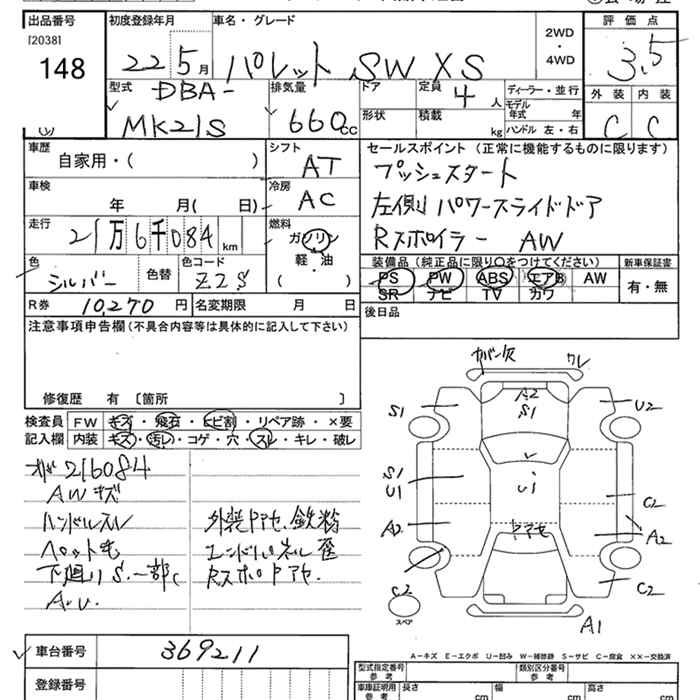 出品番号 初度登録年月 車名・グレード 2WD・4WD 評価点
[2038]
148 22 5月 パレット SW XS 3.5
外装 内装
C C
型式 DBA-
MK21S
排気量 660cc
ドア 定員 4人 ディーラー・並行
形状 積載 kg モデル年式 年 ハンドル 左・右
車歴 自家用・( )
シフト AT
セールスポイント (正常に機能するものに限ります)
プッシュスタート
左側パワースライドドア
Rスポイラー AW
車検 年 月( 日)
冷房 AC
走行 21万6千084km
燃料 ガソリン
軽・油
( )
色 シルバー 色替 色コード Z2S
装備品 (純正品に限り○をつけてください) 新車保証書
PS PW ABS エアB AW 有・無
SR ナビ TV カワ
R券 10,270円 名変期限 月 日
後日品
注意事項申告欄(不具合内容等は具体的に記入して下さい)
修復歴 有 〔箇所 〕
検査員記入欄 FW キズ・飛石・ヒビ割・リペア跡・×要
内装 キズ・汚れ・コゲ・穴・スレ・キレ・破レ
216084
AWキズ
ハンドルスレ
ペット毛
下廻りS.一部C
A.U.
外装Pアセ.鉄粉
RスポPアセ.
ワレ
A2
S1
S1 U2
S1
U1
A2
C2
A2
C2 C2
スペア
A1
車台番号 369211
登録番号
A-キズ E-エクボ U-凹み W-補修跡 S-サビ C-腐食 ××-交換済
型式指定番号 参考 類別区分番号 参考
車庫証明用 参考 長さ cm 幅 cm 高さ cm